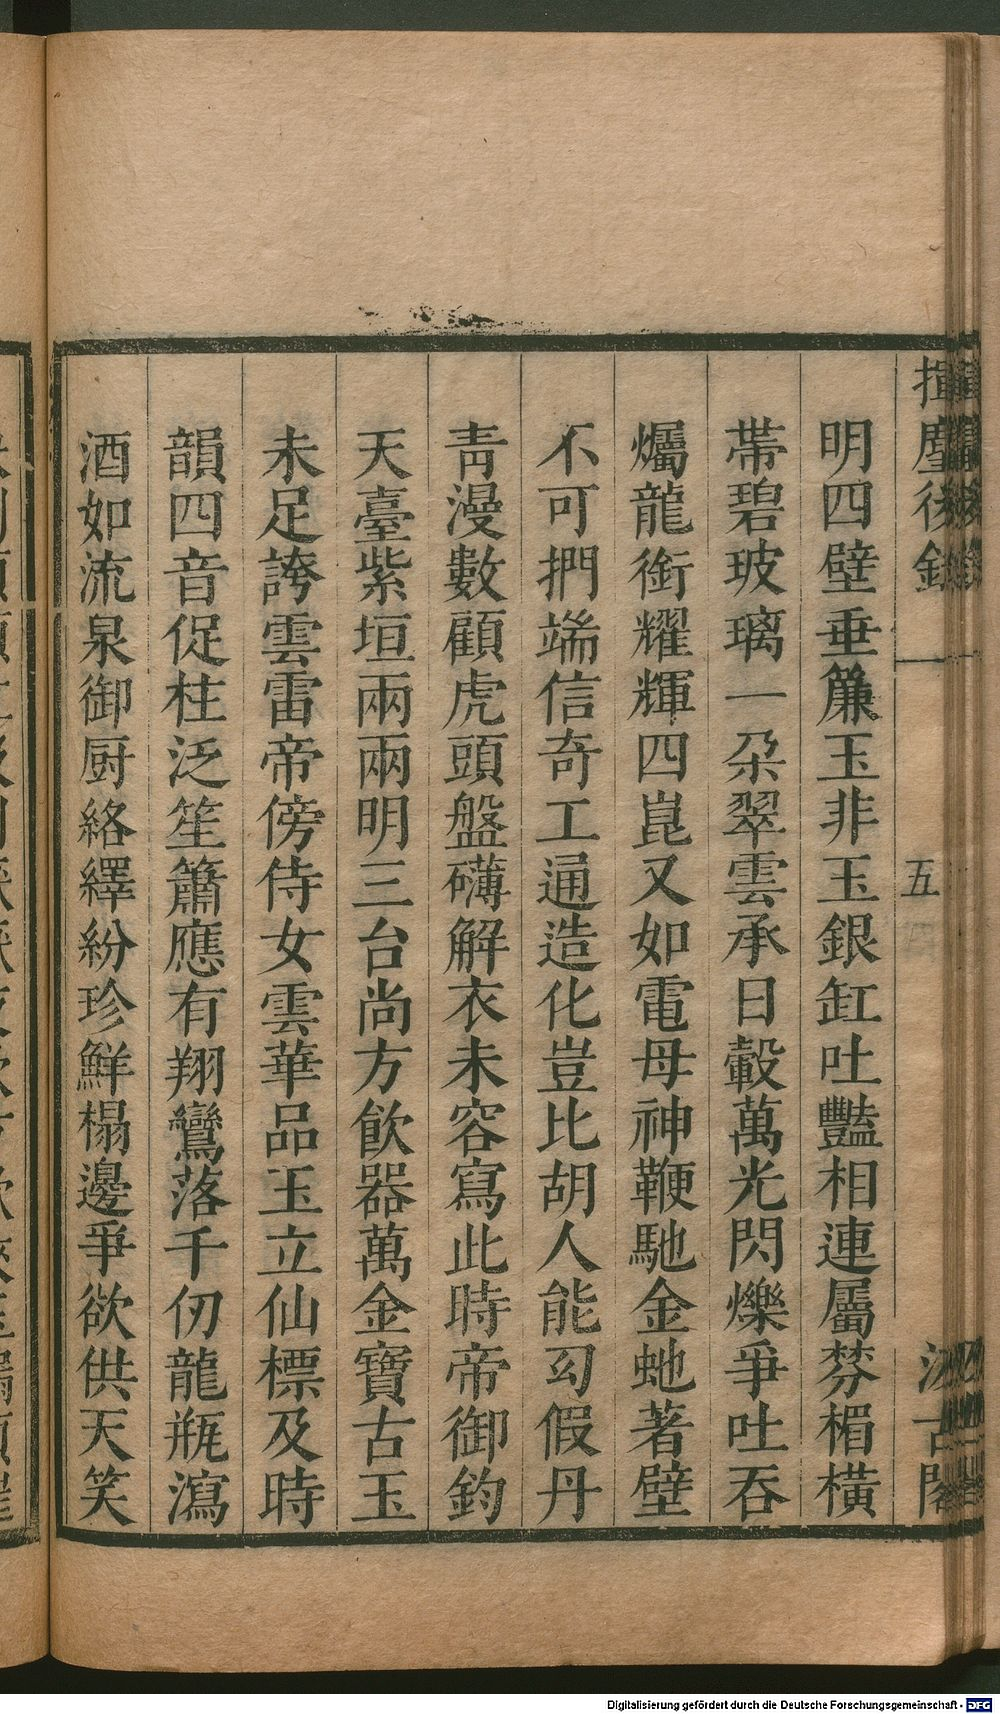 揮麈後錄
五
汲古閣
明四壁垂簾玉非玉銀缸吐豔相連屬棼楣橫
帶碧玻璃一朵翠雲承日轂萬光閃爍爭吐吞
爥龍銜耀輝四崑又如電母神鞭馳金虵著壁
不可捫端信奇工通造化豈比胡人能幻假丹
靑漫數顧虎頭盤礴解衣未容寫此時帝御鈞
天臺紫垣兩兩明三台尚方飮器萬金寶古玉
未足誇雲雷帝傍侍女雲華品玉立仙標及時
韻四音促柱泛笙簫應有翔鸞落千仞龍瓶瀉
酒如流泉御厨絡繹紛珍鮮榻邊爭欲供天笑
Digitalisierung gefördert durch die Deutsche Forschungsgemeinschaft - DFG